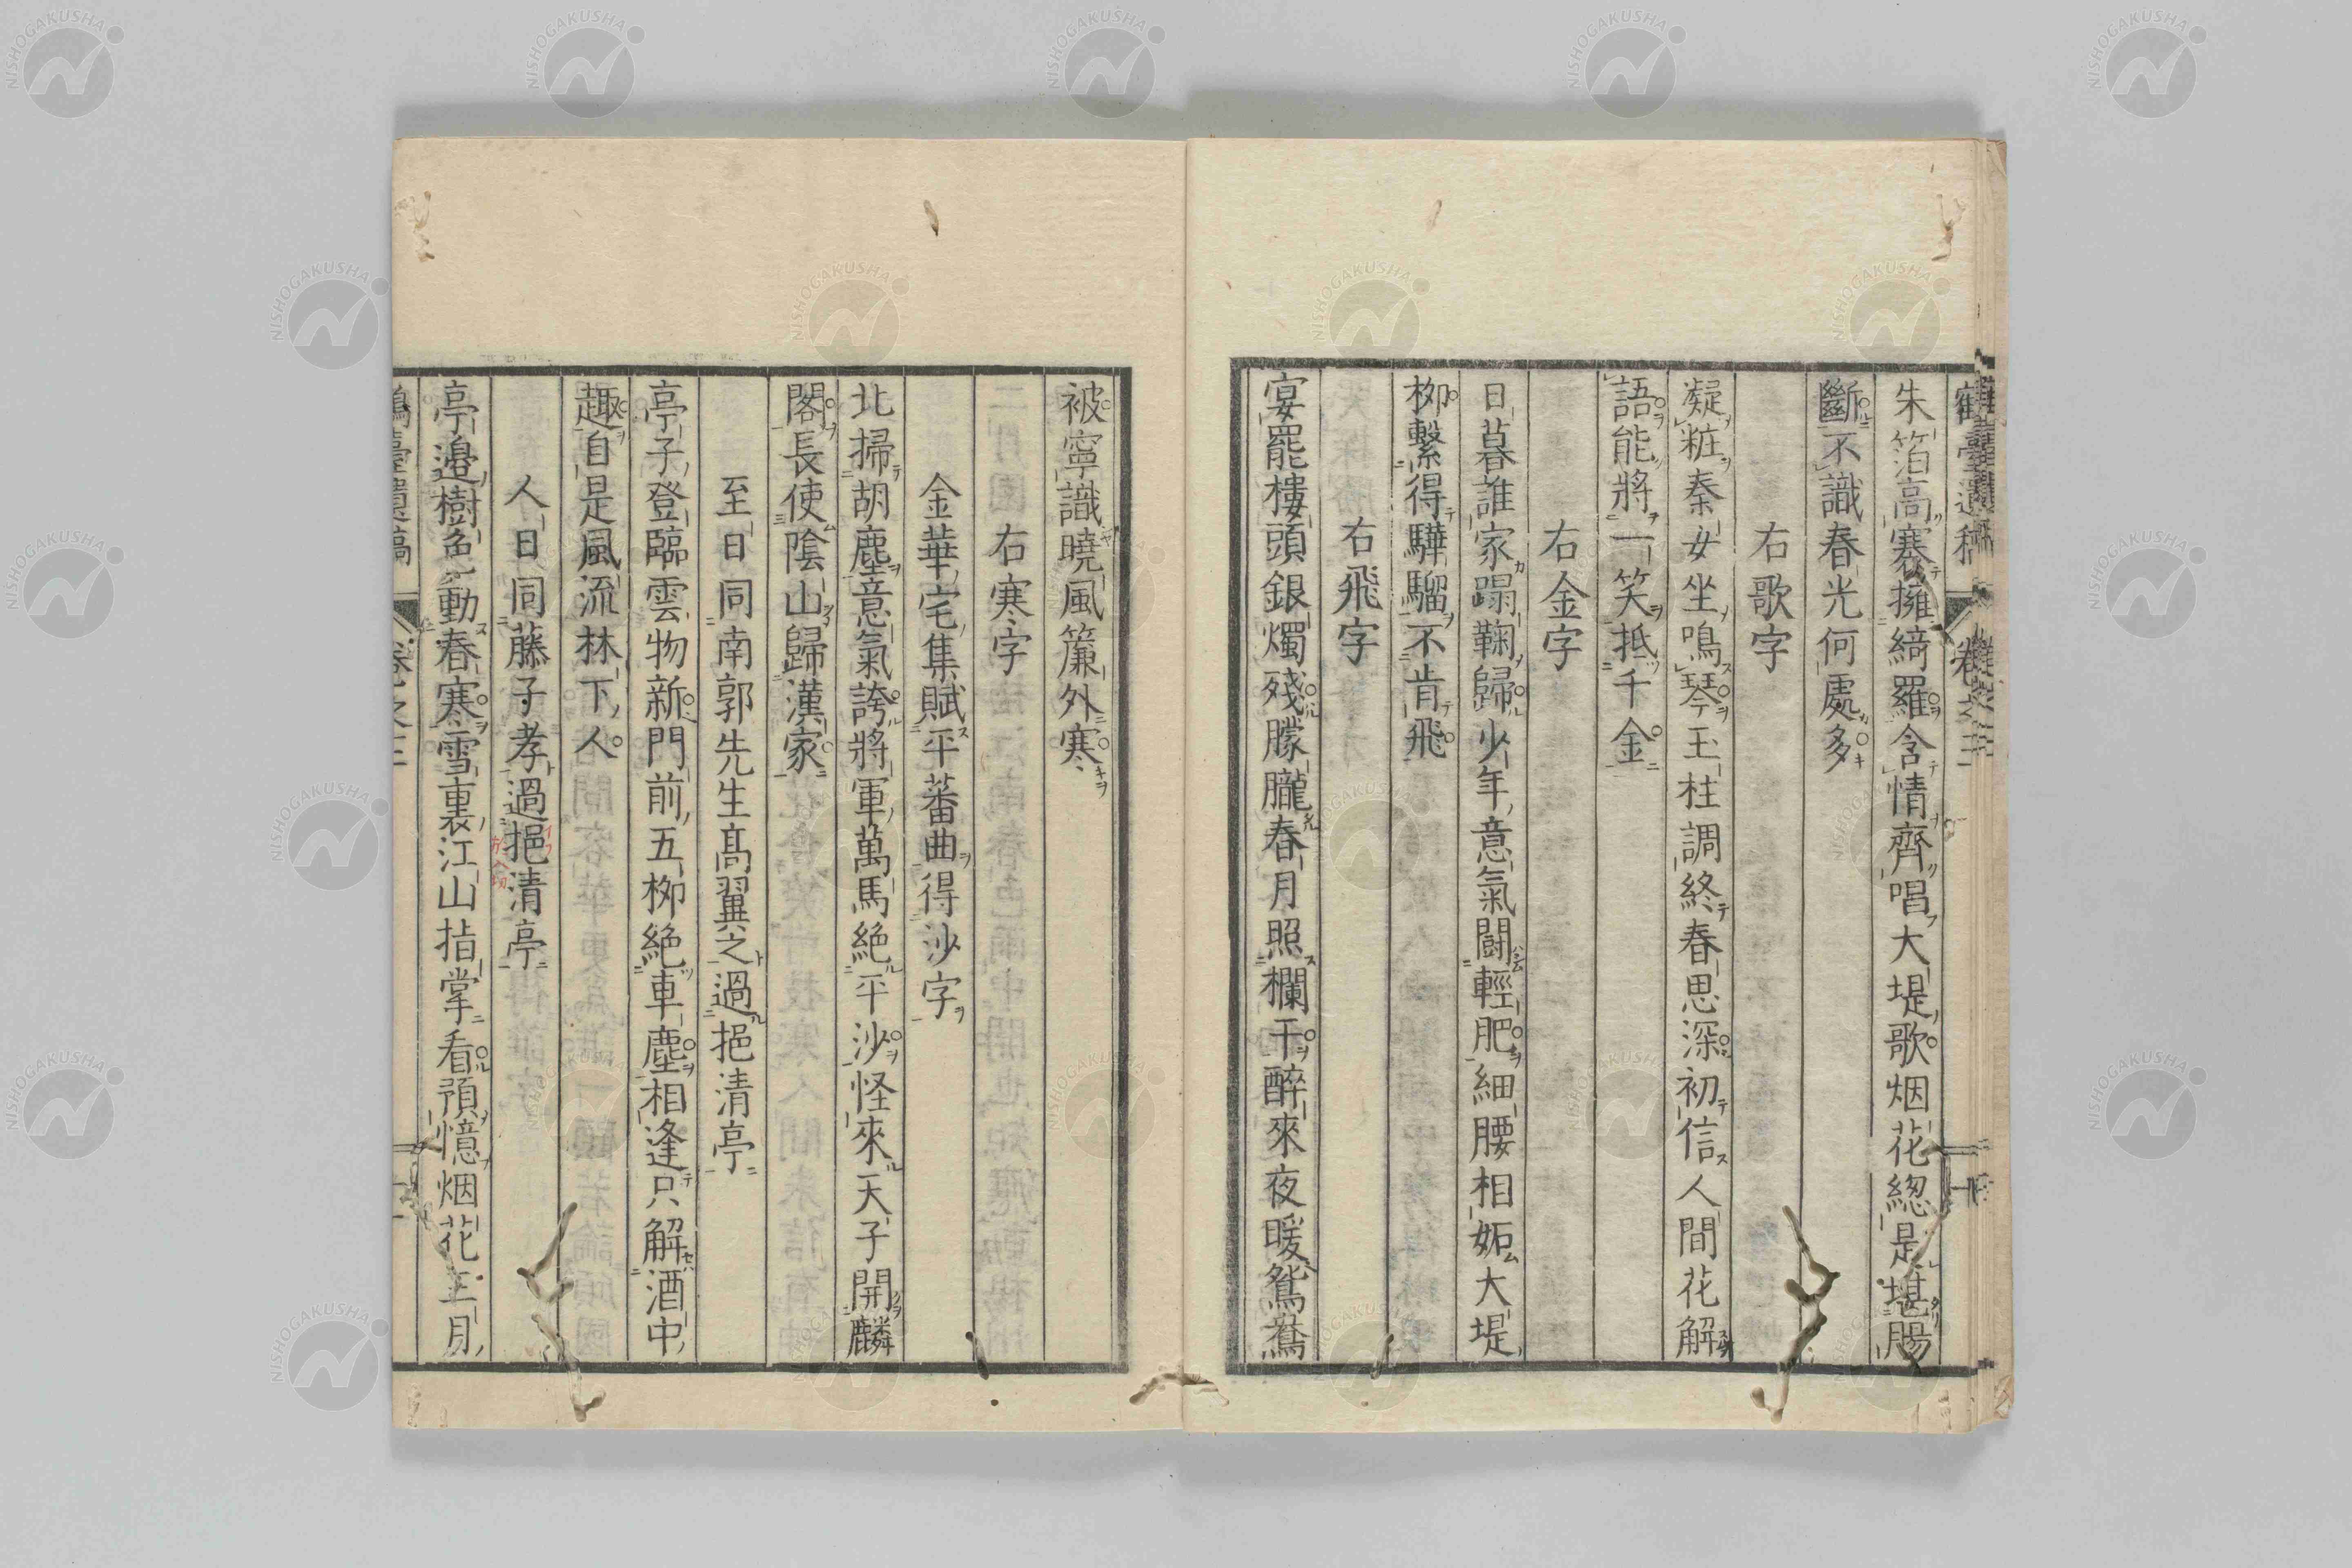 鶴臺遺稿 卷之三
朱箔高褰擁綺羅含情齊唱大堤歌烟花總是堪腸
斷不識春光何處多
右歌字
凝粧秦女坐鳴琴玉柱調終春思深初信人間花解
語能將一笑抵千金
右金字
日暮誰家蹋鞠歸少年意氣鬪輕肥細腰相妬大堤
柳繫得驊騮不肯飛
右飛字
宴罷樓頭銀燭殘朦朧春月照欄干醉來夜暖鴛鴦
被寧識曉風簾外寒
右寒字
金華宅集賦平蕃曲得沙字
北掃胡塵意氣誇將軍萬馬絶平沙怪來天子開麟
閣長使陰山歸漢家
至日同南郭先生髙翼之過挹清亭
亭子登臨雲物新門前五柳絶車塵相逢只解酒中
趣自是風流林下人
人日同藤子孝過挹清亭
亭邉樹色動春寒雪裏江山指掌看預憶烟花三月
鶴臺遺稿 卷之三
NISHOGAKUSHA